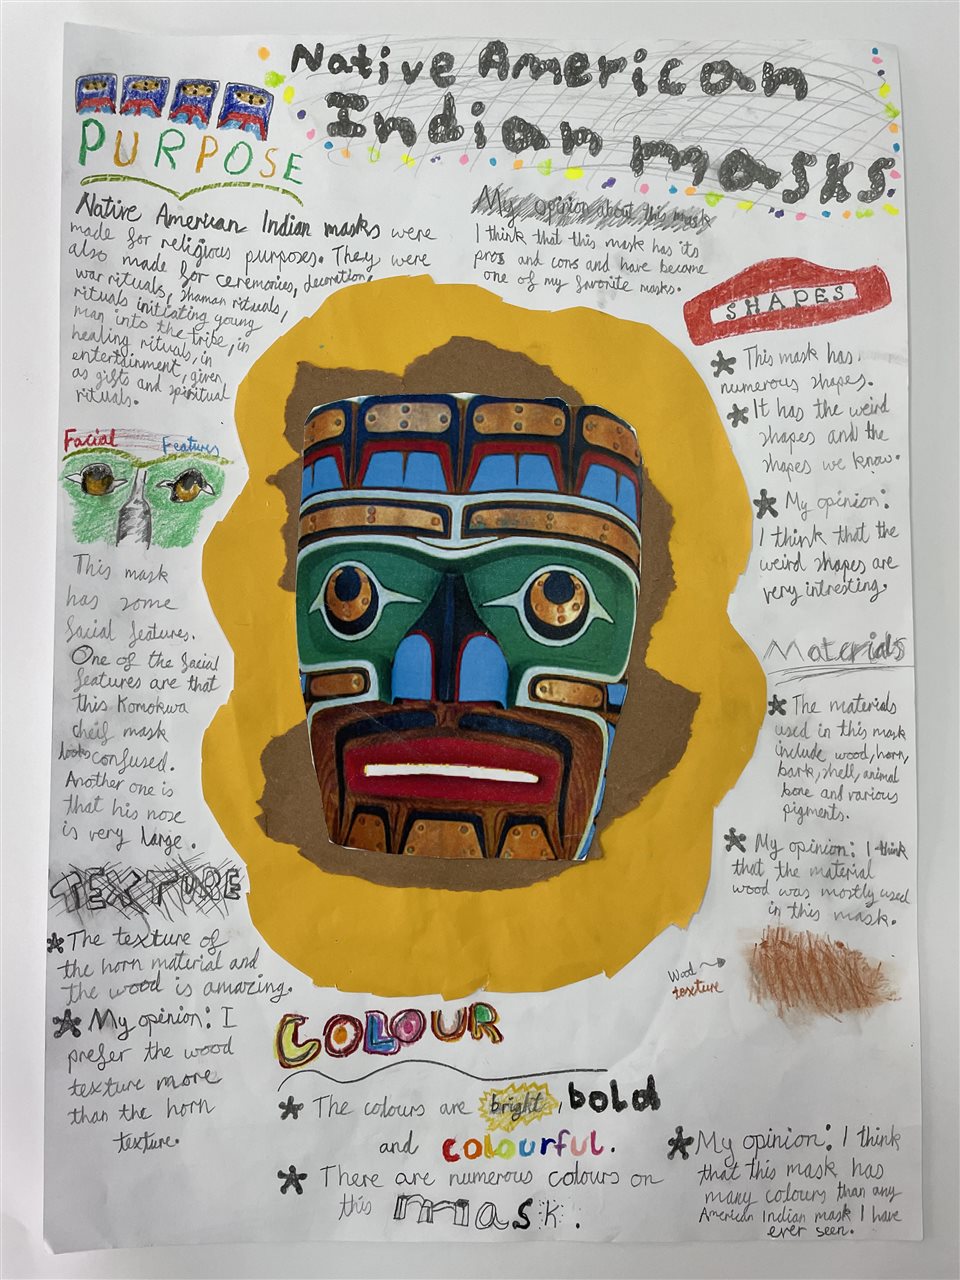 Native American
Indian masks
PURPOSE
Native American Indian masks were
made for religious purposes. They were
also made for ceremonies, decoration,
war rituals, shaman rituals,
rituals initiating young
man into the tribe, in
healing rituals, in
entertainment, given
as gifts and spiritual
rituals.
My opinion about this mask
I think that this mask has its
pros and cons and have become
one of my favorite masks.
SHAPES
This mask has
numerous shapes.
It has the weird
shapes and the
shapes we know.
My opinion:
I think that the
weird shapes are
very intresting.
Facial Features
This mask
has some
facial features.
One of the facial
features are that
this Komokwa
cheif mask
looks confused.
Another one is
that his nose
is very large.
Materials
The materials
used in this mask
include wood, horn,
bark, shell, animal
bone and various
pigments.
My opinion: I think
that the material
wood was mostly used
in this mask.
Wood
texture
TEXTURE
The texture of
the horn material and
the wood is amazing.
My opinion: I
prefer the wood
texture more
than the horn
texture.
COLOUR
The colours are bright, bold
and colourful.
There are numerous colours on
this mask.
My opinion: I think
that this mask has
many colours than any
American Indian mask I have
ever seen.